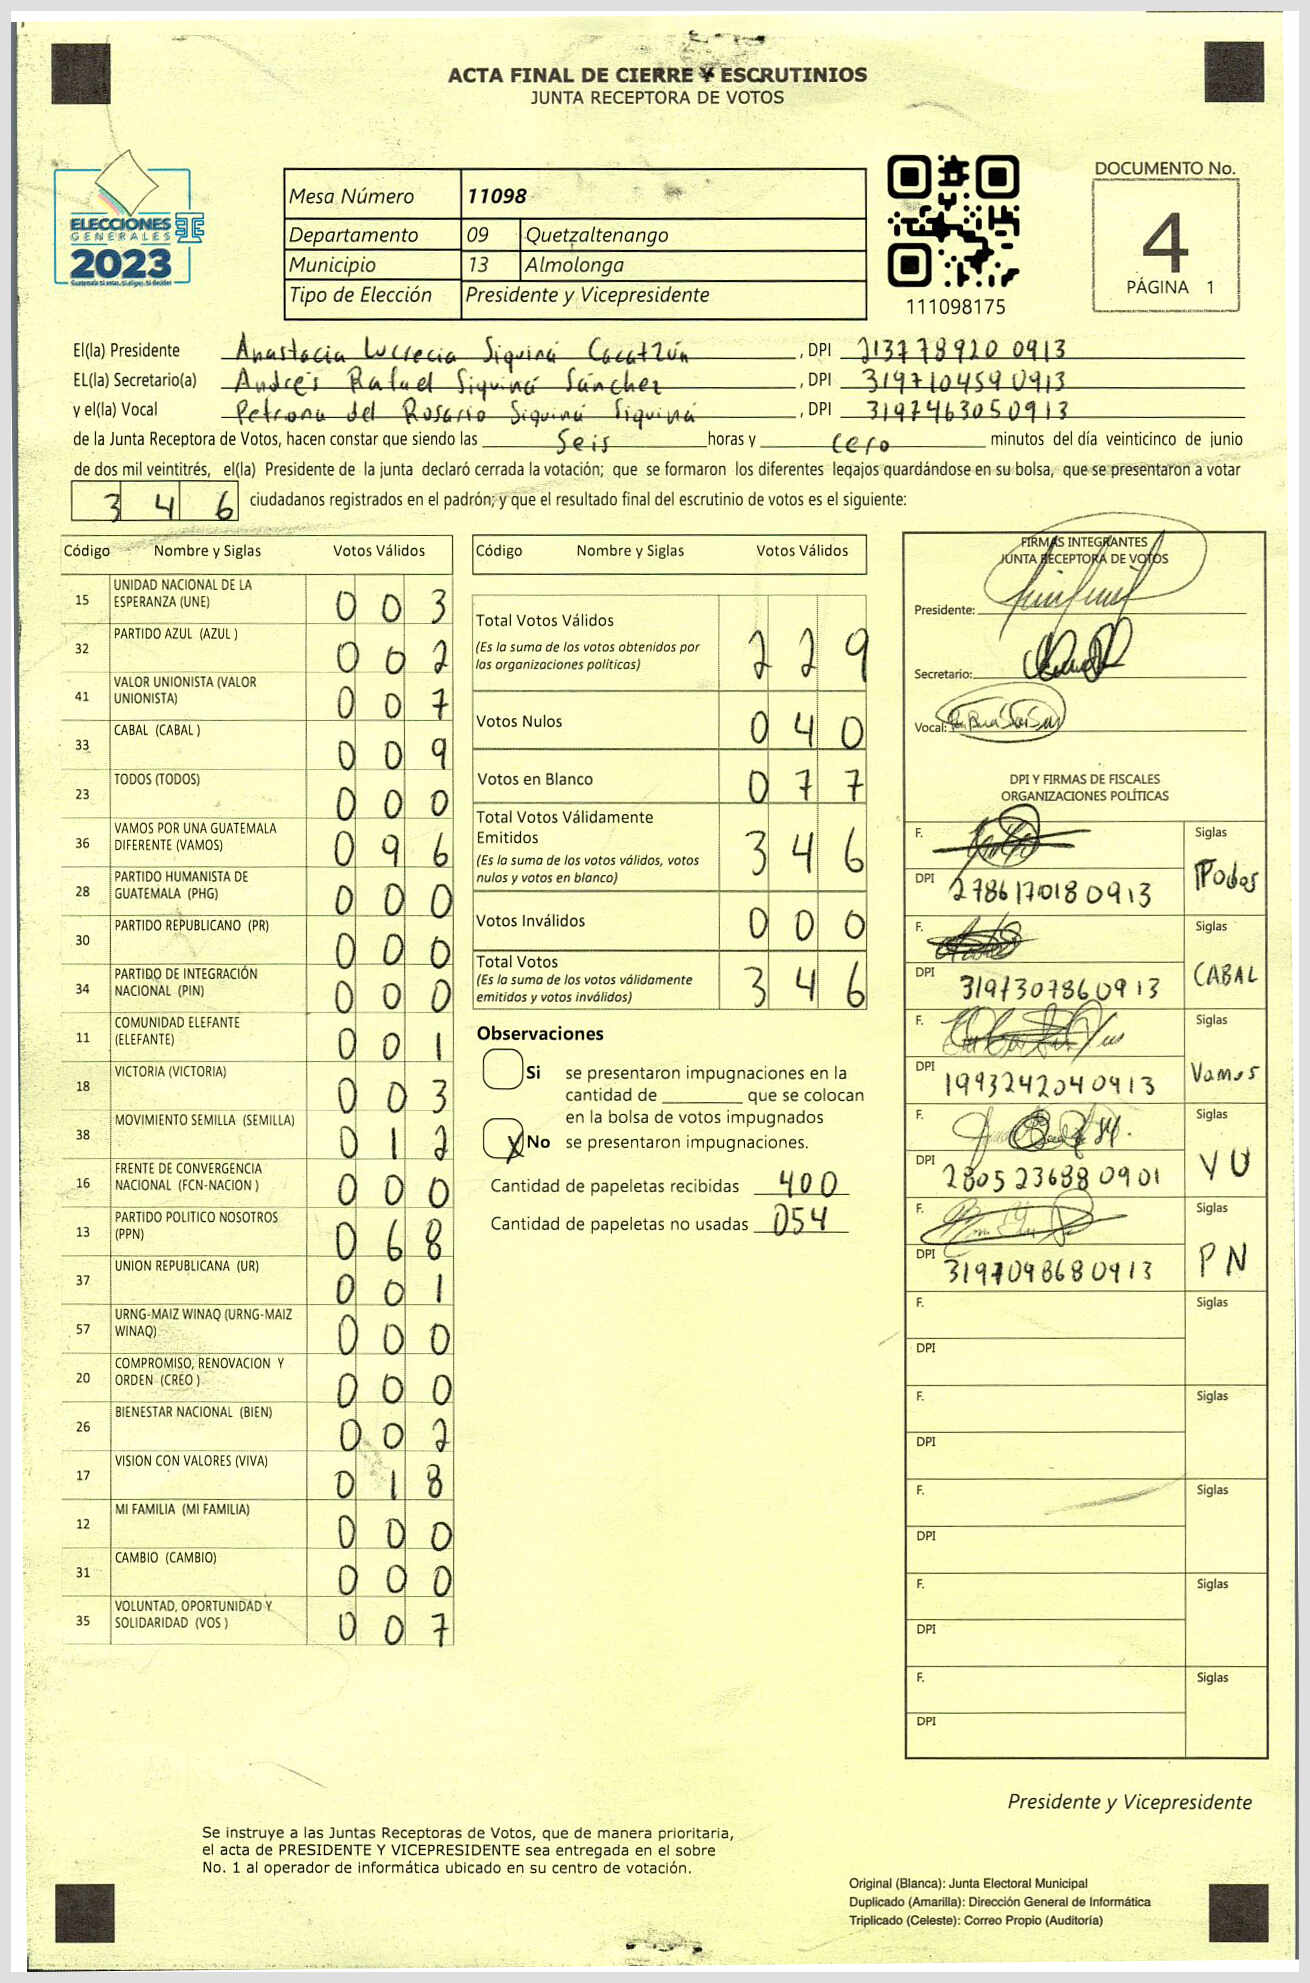 ACTA FINAL DE CIERRE Y ESCRUTINIOS
JUNTA RECEPTORA DE VOTOS
ELECCIONES
GENERALES
2023
Mesa Número 11098
Departamento 09 Quetzaltenango
Municipio 13 Almolonga
Tipo de Elección Presidente y Vicepresidente
111098175
DOCUMENTO No.
4
PÁGINA 1
El(la) Presidente Anastacia Lucrecia Siquiná Cacatzún, DPI 213778920 0913
EL(la) Secretario(a) Andrés Rafael Siquiná Sánchez, DPI 319710459 0913
y el(la) Vocal Petrona del Rosario Siquiná Siquiná, DPI 3197463050913
de la Junta Receptora de Votos, hacen constar que siendo las Seis horas y cero minutos del día veinticinco de junio
de dos mil veintitrés, el(la) Presidente de la junta declaró cerrada la votación; que se formaron los diferentes legajos quardándose en su bolsa, que se presentaron a votar
346 ciudadanos registrados en el padrón; y que el resultado final del escrutinio de votos es el siguiente:
Código Nombre y Siglas Votos Válidos
15 UNIDAD NACIONAL DE LA ESPERANZA (UNE) 003
32 PARTIDO AZUL (AZUL ) 002
41 VALOR UNIONISTA (VALOR UNIONISTA) 007
33 CABAL (CABAL ) 009
23 TODOS (TODOS) 000
36 VAMOS POR UNA GUATEMALA DIFERENTE (VAMOS) 096
28 PARTIDO HUMANISTA DE GUATEMALA (PHG) 000
30 PARTIDO REPUBLICANO (PR) 000
34 PARTIDO DE INTEGRACIÓN NACIONAL (PIN) 000
11 COMUNIDAD ELEFANTE (ELEFANTE) 001
18 VICTORIA (VICTORIA) 003
38 MOVIMIENTO SEMILLA (SEMILLA) 012
16 FRENTE DE CONVERGENCIA NACIONAL (FCN-NACION ) 000
13 PARTIDO POLITICO NOSOTROS (PPN) 068
37 UNION REPUBLICANA (UR) 001
57 URNG-MAIZ WINAQ (URNG-MAIZ WINAQ) 000
20 COMPROMISO, RENOVACION Y ORDEN (CREO ) 000
26 BIENESTAR NACIONAL (BIEN) 002
17 VISION CON VALORES (VIVA) 018
12 MI FAMILIA (MI FAMILIA) 000
31 CAMBIO (CAMBIO) 000
35 VOLUNTAD, OPORTUNIDAD Y SOLIDARIDAD (VOS ) 007
Código Nombre y Siglas Votos Válidos
Total Votos Válidos 229
(Es la suma de los votos obtenidos por
las organizaciones políticas)
Votos Nulos 040
Votos en Blanco 077
Total Votos Válidamente
Emitidos 346
(Es la suma de los votos válidos, votos
nulos y votos en blanco)
Votos Inválidos 000
Total Votos 346
(Es la suma de los votos válidamente
emitidos y votos inválidos)
Observaciones
Si se presentaron impugnaciones en la
cantidad de ________ que se colocan
en la bolsa de votos impugnados
X No se presentaron impugnaciones.
Cantidad de papeletas recibidas 400
Cantidad de papeletas no usadas 054
FIRMAS INTEGRANTES
JUNTA RECEPTORA DE VOTOS
Presidente:
Secretario:
Vocal:
DPI Y FIRMAS DE FISCALES
ORGANIZACIONES POLÍTICAS
F. Siglas
DPI 278617018 0913 Todos
F. Siglas
DPI 3197307860913 CABAL
F. Siglas
DPI 1993242040913 Vamos
F. Siglas
DPI 2805 23688 0901 VU
F. Siglas
DPI 3197098680913 PN
F. Siglas
DPI
F. Siglas
DPI
F. Siglas
DPI
F. Siglas
DPI
F. Siglas
DPI
Presidente y Vicepresidente
Se instruye a las Juntas Receptoras de Votos, que de manera prioritaria,
el acta de PRESIDENTE Y VICEPRESIDENTE sea entregada en el sobre
No. 1 al operador de informática ubicado en su centro de votación.
Original (Blanca): Junta Electoral Municipal
Duplicado (Amarilla): Dirección General de Informática
Triplicado (Celeste): Correo Propio (Auditoría)